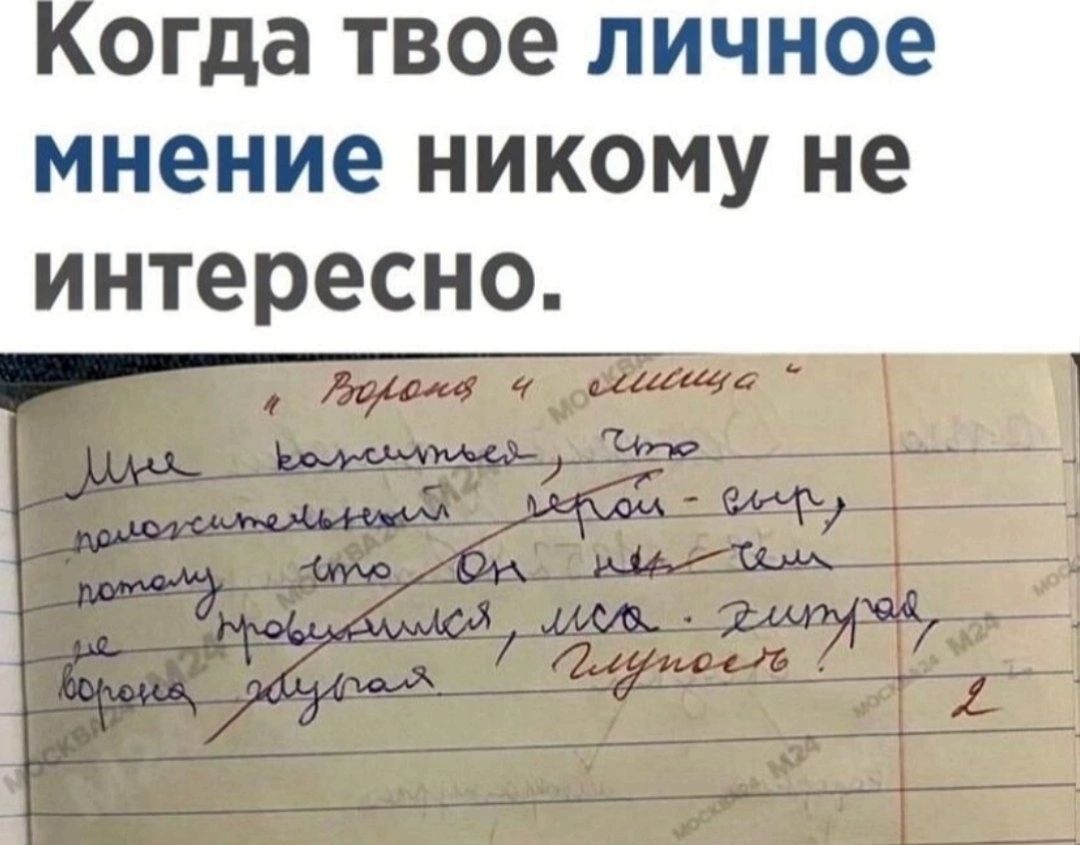 Когда твое личное
мнение никому не
интересно.
"Ворона и лисица"
Мне кажиться, что
положительный герой - сыр,
потому что он не чем
не провинился, лиса - хитрая,
ворона глупая Глупость!
2
МОСКВА24 М24